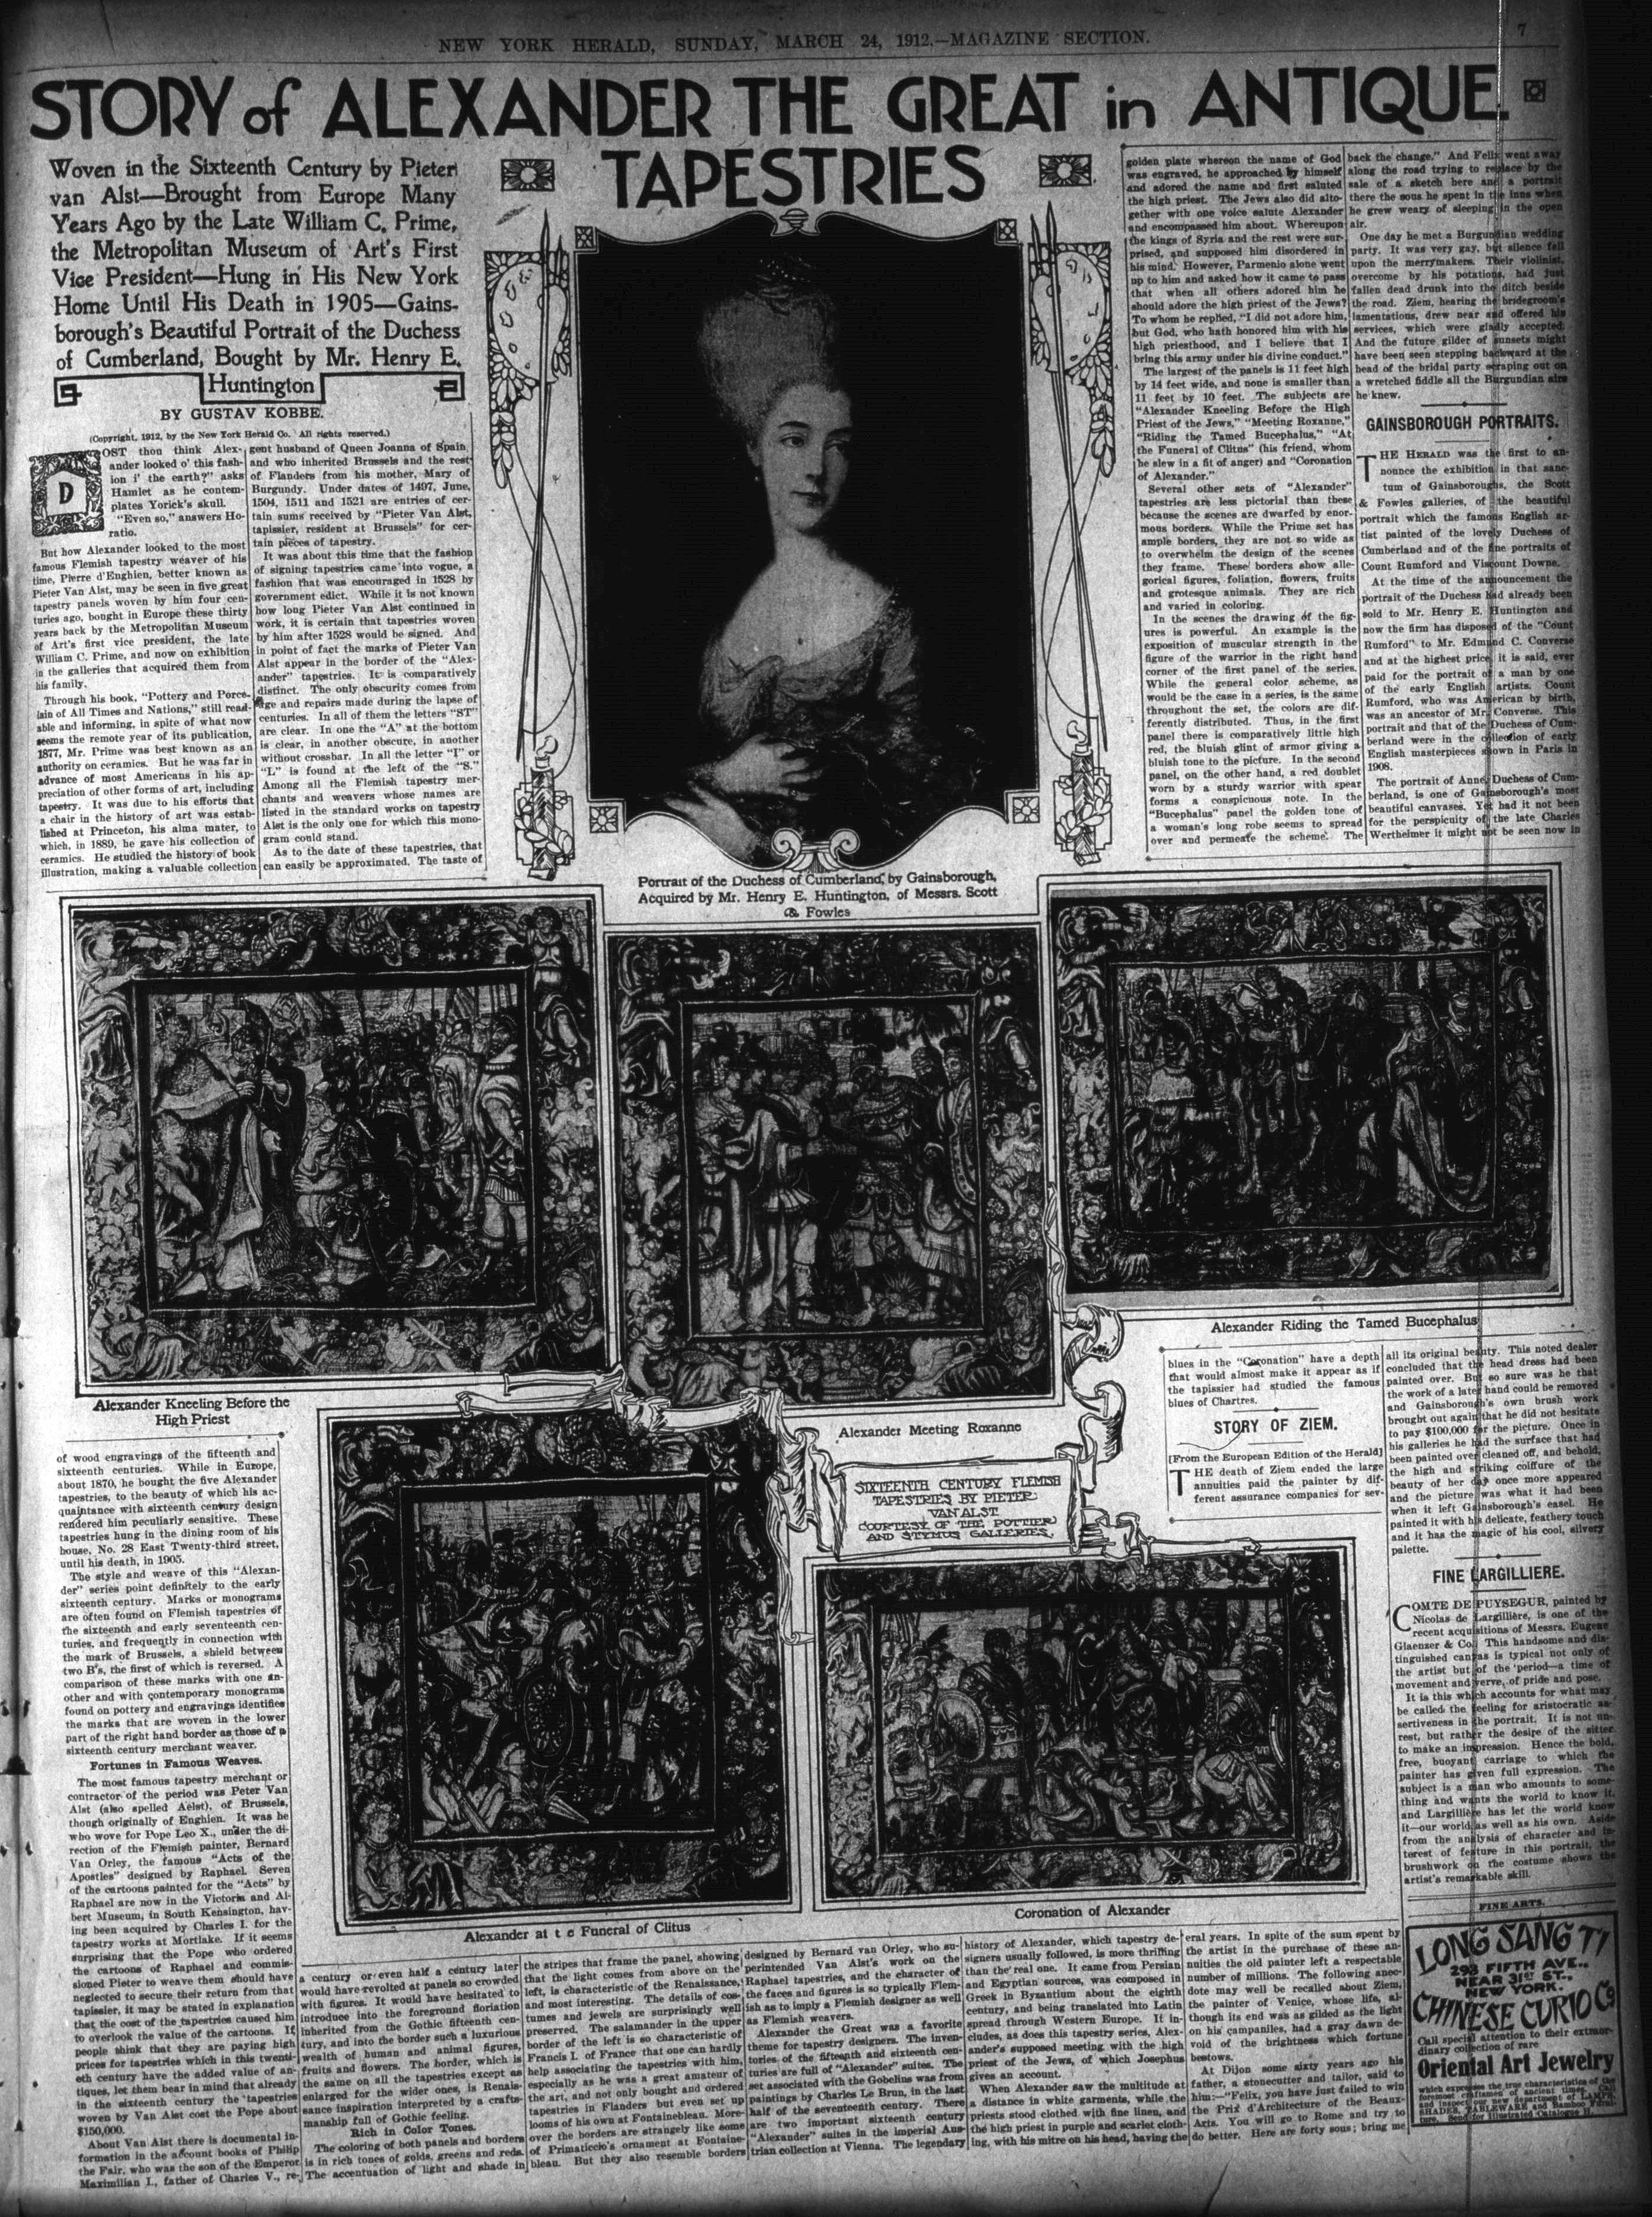 NEW YORK HERALD, SUNDAY, MARCH 24, 1912.—MAGAZINE SECTION.
7
STORY of ALEXANDER THE GREAT in ANTIQUE
TAPESTRIES
Woven in the Sixteenth Century by Pieter
van Alst—Brought from Europe Many
Years Ago by the Late William C. Prime,
the Metropolitan Museum of Art's First
Vice President—Hung in His New York
Home Until His Death in 1905—Gains-
borough's Beautiful Portrait of the Duchess
of Cumberland, Bought by Mr. Henry E.
Huntington
BY GUSTAV KOBBE.
(Copyright, 1912, by the New York Herald Co. All rights reserved.)
DOST thou think Alex-
ander looked o' this fash-
ion i' the earth?" asks
Hamlet as he contem-
plates Yorick's skull.
"Even so," answers Ho-
ratio.
But how Alexander looked to the most
famous Flemish tapestry weaver of his
time, Pierre d'Enghien, better known as
Pieter Van Alst, may be seen in five great
tapestry panels woven by him four cen-
turies ago, bought in Europe these thirty
years back by the Metropolitan Museum
of Art's first vice president, the late
William C. Prime, and now on exhibition
in the galleries that acquired them from
his family.
Through his book, "Pottery and Porce-
lain of All Times and Nations," still read-
able and informing, in spite of what now
seems the remote year of its publication,
1877, Mr. Prime was best known as an
authority on ceramics. But he was far in
advance of most Americans in his ap-
preciation of other forms of art, including
tapestry. It was due to his efforts that
a chair in the history of art was estab-
lished at Princeton, his alma mater, to
which, in 1889, he gave his collection of
ceramics. He studied the history of book
illustration, making a valuable collection
of wood engravings of the fifteenth and
sixteenth centuries. While in Europe,
about 1870, he bought the five Alexander
tapestries, to the beauty of which his ac-
quaintance with sixteenth century design
rendered him peculiarly sensitive. These
tapestries hung in the dining room of his
house, No. 28 East Twenty-third street,
until his death, in 1905.
The style and weave of this "Alexan-
der" series point definitely to the early
sixteenth century. Marks or monograms
are often found on Flemish tapestries of
the sixteenth and early seventeenth cen-
turies, and frequently in connection with
the mark of Brussels, a shield between
two B's, the first of which is reversed. A
comparison of these marks with one an-
other and with contemporary monograms
found on pottery and engravings identifies
the marks that are woven in the lower
part of the right hand border as those of a
sixteenth century merchant weaver.
Fortunes in Famous Weaves.
The most famous tapestry merchant or
contractor of the period was Peter Van
Alst (also spelled Aelst), of Brussels,
though originally of Enghien. It was he
who wove for Pope Leo X., under the di-
rection of the Flemish painter, Bernard
Van Orley, the famous "Acts of the
Apostles" designed by Raphael. Seven
of the cartoons painted for the "Acts" by
Raphael are now in the Victoria and Al-
bert Museum, in South Kensington, hav-
ing been acquired by Charles I. for the
tapestry works at Mortlake. If it seems
surprising that the Pope who ordered
the cartoons of Raphael and commis-
sioned Pieter to weave them should have
neglected to secure their return from that
tapissier, it may be stated in explanation
that the cost of the tapestries caused him
to overlook the value of the cartoons. If
people think that they are paying high
prices for tapestries which in this twenti-
eth century have the added value of an-
tiques, let them bear in mind that already
in the sixteenth century the tapestries
woven by Van Alst cost the Pope about
$150,000.
About Van Alst there is documental in-
formation in the account books of Philip
the Fair, who was the son of the Emperor
Maximilian I., father of Charles V., re-
gent husband of Queen Joanna of Spain,
and who inherited Brussels and the rest
of Flanders from his mother, Mary of
Burgundy. Under dates of 1497, June,
1504, 1511 and 1521 are entries of cer-
tain sums received by "Pieter Van Alst,
tapissier, resident at Brussels" for cer-
tain pieces of tapestry.
It was about this time that the fashion
of signing tapestries came into vogue, a
fashion that was encouraged in 1528 by
government edict. While it is not known
how long Pieter Van Alst continued in
work, it is certain that tapestries woven
by him after 1528 would be signed. And
in point of fact the marks of Pieter Van
Alst appear in the border of the "Alex-
ander" tapestries. It is comparatively
distinct. The only obscurity comes from
age and repairs made during the lapse of
centuries. In all of them the letters "ST"
are clear. In one the "A" at the bottom
is clear, in another obscure, in another
without crossbar. In all the letter "I" or
"L" is found at the left of the "S."
Among all the Flemish tapestry mer-
chants and weavers whose names are
listed in the standard works on tapestry
Alst is the only one for which this mono-
gram could stand.
As to the date of these tapestries, that
can easily be approximated. The taste of
a century or even half a century later
would have revolted at panels so crowded
with figures. It would have hesitated to
introduce into the foreground floriation
inherited from the Gothic fifteenth cen-
tury, and into the border such a luxurious
wealth of human and animal figures,
fruits and flowers. The border, which is
the same on all the tapestries except as
enlarged for the wider ones, is Renais-
sance inspiration interpreted by a crafts-
manship full of Gothic feeling.
Rich in Color Tones.
The coloring of both panels and borders
is in rich tones of golds, greens and reds.
The accentuation of light and shade in
the stripes that frame the panel, showing
that the light comes from above on the
left, is characteristic of the Renaissance,
and most interesting. The details of cos-
tumes and jewels are surprisingly well
preserved. The salamander in the upper
border of the left is so characteristic of
Francis I. of France that one can hardly
help associating the tapestries with him,
especially as he was a great amateur of
the art, and not only bought and ordered
tapestries in Flanders but even set up
looms of his own at Fontainebleau. More-
over the borders are strangely like some
of Primaticcio's ornament at Fontaine-
bleau. But they also resemble borders
designed by Bernard van Orley, who su-
perintended Van Alst's work on the
Raphael tapestries, and the character of
the faces and figures is so typically Flem-
ish as to imply a Flemish designer as well
as Flemish weavers.
Alexander the Great was a favorite
theme for tapestry designers. The inven-
tories of the fifteenth and sixteenth cen-
turies are full of "Alexander" suites. The
set associated with the Gobelins was from
paintings by Charles Le Brun, in the last
half of the seventeenth century. There
are two important sixteenth century
"Alexander" suites in the imperial Aus-
trian collection at Vienna. The legendary
history of Alexander, which tapestry de-
signers usually followed, is more thrilling
than the real one. It came from Persian
and Egyptian sources, was composed in
Greek in Byzantium about the eighth
century, and being translated into Latin
spread through Western Europe. It in-
cludes, as does this tapestry series, Alex-
ander's supposed meeting with the high
priest of the Jews, of which Josephus
gives an account.
When Alexander saw the multitude at
a distance in white garments, while the
priests stood clothed with fine linen, and
the high priest in purple and scarlet cloth-
ing, with his mitre on his head, having the
golden plate whereon the name of God
was engraved, he approached by himself
and adored the name and first saluted
the high priest. The Jews also did alto-
gether with one voice salute Alexander
and encompassed him about. Whereupon
the kings of Syria and the rest were sur-
prised, and supposed him disordered in
his mind. However, Parmenio alone went
up to him and asked how it came to pass
that when all others adored him he
should adore the high priest of the Jews?
To whom he replied, "I did not adore him,
but God, who hath honored him with his
high priesthood, and I believe that I
bring this army under his divine conduct."
The largest of the panels is 11 feet high
by 14 feet wide, and none is smaller than
11 feet by 10 feet. The subjects are
"Alexander Kneeling Before the High
Priest of the Jews," "Meeting Roxanne,"
"Riding the Tamed Bucephalus," "At
the Funeral of Clitus" (his friend, whom
he slew in a fit of anger) and "Coronation
of Alexander."
Several other sets of "Alexander"
tapestries are less pictorial than these
because the scenes are dwarfed by enor-
mous borders. While the Prime set has
ample borders, they are not so wide as
to overwhelm the design of the scenes
they frame. These borders show alle-
gorical figures, foliation, flowers, fruits
and grotesque animals. They are rich
and varied in coloring.
In the scenes the drawing of the fig-
ures is powerful. An example is the
exposition of muscular strength in the
figure of the warrior in the right hand
corner of the first panel of the series.
While the general color scheme, as
would be the case in a series, is the same
throughout the set, the colors are dif-
ferently distributed. Thus, in the first
panel there is comparatively little high
red, the bluish glint of armor giving a
bluish tone to the picture. In the second
panel, on the other hand, a red doublet
worn by a sturdy warrior with spear
forms a conspicuous note. In the
"Bucephalus" panel the golden tone of
a woman's long robe seems to spread
over and permeate the scheme. The
blues in the "Coronation" have a depth
that would almost make it appear as if
the tapissier had studied the famous
blues of Chartres.
STORY OF ZIEM.
[From the European Edition of the Herald]
THE death of Ziem ended the large
annuities paid the painter by dif-
ferent assurance companies for sev-
eral years. In spite of the sum spent by
the artist in the purchase of these an-
nuities the old painter left a respectable
number of millions. The following anec-
dote may well be recalled about Ziem,
the painter of Venice, whose life, al-
though its end was as gilded as the light
on his campaniles, had a gray dawn de-
void of the brightness which fortune
bestows.
At Dijon some sixty years ago his
father, a stonecutter and tailor, said to
him:—"Felix, you have just failed to win
the Prix d'Architecture of the Beaux-
Arts. You will go to Rome and try to
do better. Here are forty sous; bring me
back the change." And Felix went away
along the road trying to replace by the
sale of a sketch here and a portrait
there the sous he spent in the inns when
he grew weary of sleeping in the open
air.
One day he met a Burgundian wedding
party. It was very gay, but silence fell
upon the merrymakers. Their violinist,
overcome by his potations, had just
fallen dead drunk into the ditch beside
the road. Ziem, hearing the bridegroom's
lamentations, drew near and offered his
services, which were gladly accepted.
And the future gilder of sunsets might
have been seen stepping backward at the
head of the bridal party scraping out on
a wretched fiddle all the Burgundian airs
he knew.
GAINSBOROUGH PORTRAITS.
THE HERALD was the first to an-
nounce the exhibition in that sanc-
tum of Gainsboroughs, the Scott
& Fowles galleries, of the beautiful
portrait which the famous English ar-
tist painted of the lovely Duchess of
Cumberland and of the fine portraits of
Count Rumford and Viscount Downe.
At the time of the announcement the
portrait of the Duchess had already been
sold to Mr. Henry E. Huntington and
now the firm has disposed of the "Count
Rumford" to Mr. Edmund C. Converse
and at the highest price, it is said, ever
paid for the portrait of a man by one
of the early English artists. Count
Rumford, who was American by birth,
was an ancestor of Mr. Converse. This
portrait and that of the Duchess of Cum-
berland were in the collection of early
English masterpieces shown in Paris in
1908.
The portrait of Anne, Duchess of Cum-
berland, is one of Gainsborough's most
beautiful canvases. Yet had it not been
for the perspicuity of the late Charles
Wertheimer it might not be seen now in
all its original beauty. This noted dealer
concluded that the head dress had been
painted over. But so sure was he that
the work of a later hand could be removed
and Gainsborough's own brush work
brought out again that he did not hesitate
to pay $100,000 for the picture. Once in
his galleries he had the surface that had
been painted over cleaned off, and behold,
the high and striking coiffure of the
beauty of her day once more appeared
and the picture was what it had been
when it left Gainsborough's easel. He
painted it with his delicate, feathery touch
and it has the magic of his cool, silvery
palette.
FINE LARGILLIERE.
COMTE DE PUYSEGUR, painted by
Nicolas de Largillière, is one of the
recent acquisitions of Messrs. Eugene
Glaenzer & Co. This handsome and dis-
tinguished canvas is typical not only of
the artist but of the period—a time of
movement and verve, of pride and pose.
It is this which accounts for what may
be called the feeling for aristocratic as-
sertiveness in the portrait. It is not un-
rest, but rather the desire of the sitter
to make an impression. Hence the bold,
free, buoyant carriage to which the
painter has given full expression. The
subject is a man who amounts to some-
thing and wants the world to know it,
and Largillière has let the world know
it—our world as well as his own. Aside
from the analysis of character and in-
terest of feature in this portrait, the
brushwork on the costume shows the
artist's remarkable skill.
Portrait of the Duchess of Cumberland, by Gainsborough,
Acquired by Mr. Henry E. Huntington, of Messrs. Scott
& Fowles
Alexander Kneeling Before the
High Priest
Alexander Meeting Roxanne
Alexander Riding the Tamed Bucephalus
SIXTEENTH CENTURY FLEMISH
TAPESTRIES BY PIETER
VAN ALST
COURTESY OF THE POTTIER
AND STYMUS GALLERIES.
Alexander at t e Funeral of Clitus
Coronation of Alexander
FINE ARTS.
LONG SANG TI
293 FIFTH AVE.,
NEAR 31ST ST.,
NEW YORK.
CHINESE CURIO Co
Call special attention to their extraor-
dinary collection of rare
Oriental Art Jewelry
which expresses the true characteristics of the
foremost craftsmen of ancient times. Call
and inspect our new department of LAMPS,
SHADES, TABLEWARE and Bamboo Furni-
ture. Send for Illustrated Catalogue H.